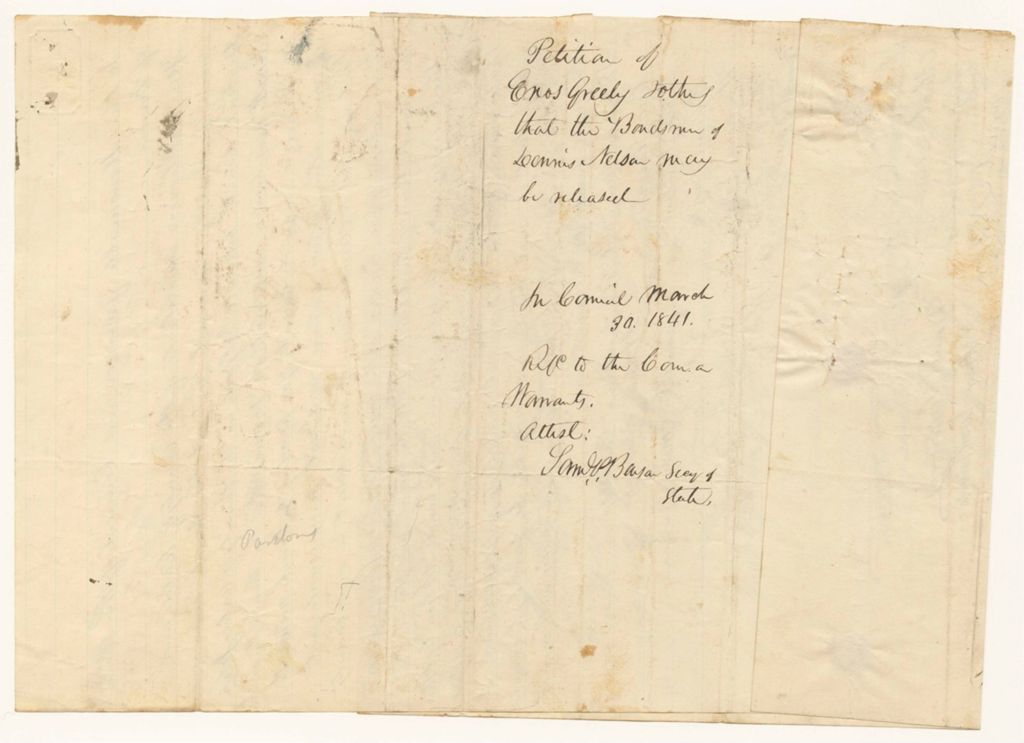 Petition of
Enos Greely & others
that the Bondsmen of
Dennis Nelson may
be released
In Council March
30. 1841.
to the Com. on
Warrants.
Attest:
Saml. P. Benson Secy of
State.
Pardons